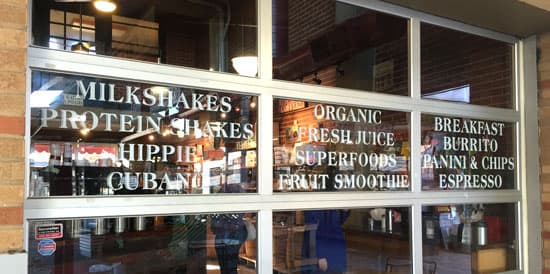 MILKSHAKES
PROTEIN SHAKES
HIPPIE
CUBANO
ORGANIC
FRESH JUICE
SUPERFOODS
FRUIT SMOOTHIE
BREAKFAST
BURRITO
PANINI & CHIPS
ESPRESSO